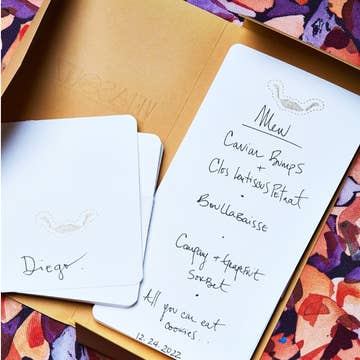 Menu
Caviar Bumps
+
Clos Lentiscus Petnat
•
Boullabaisse
•
Campary + Grapefruit
Sorbet
•
All you can eat
cookies...
12.24.2022
Diego.